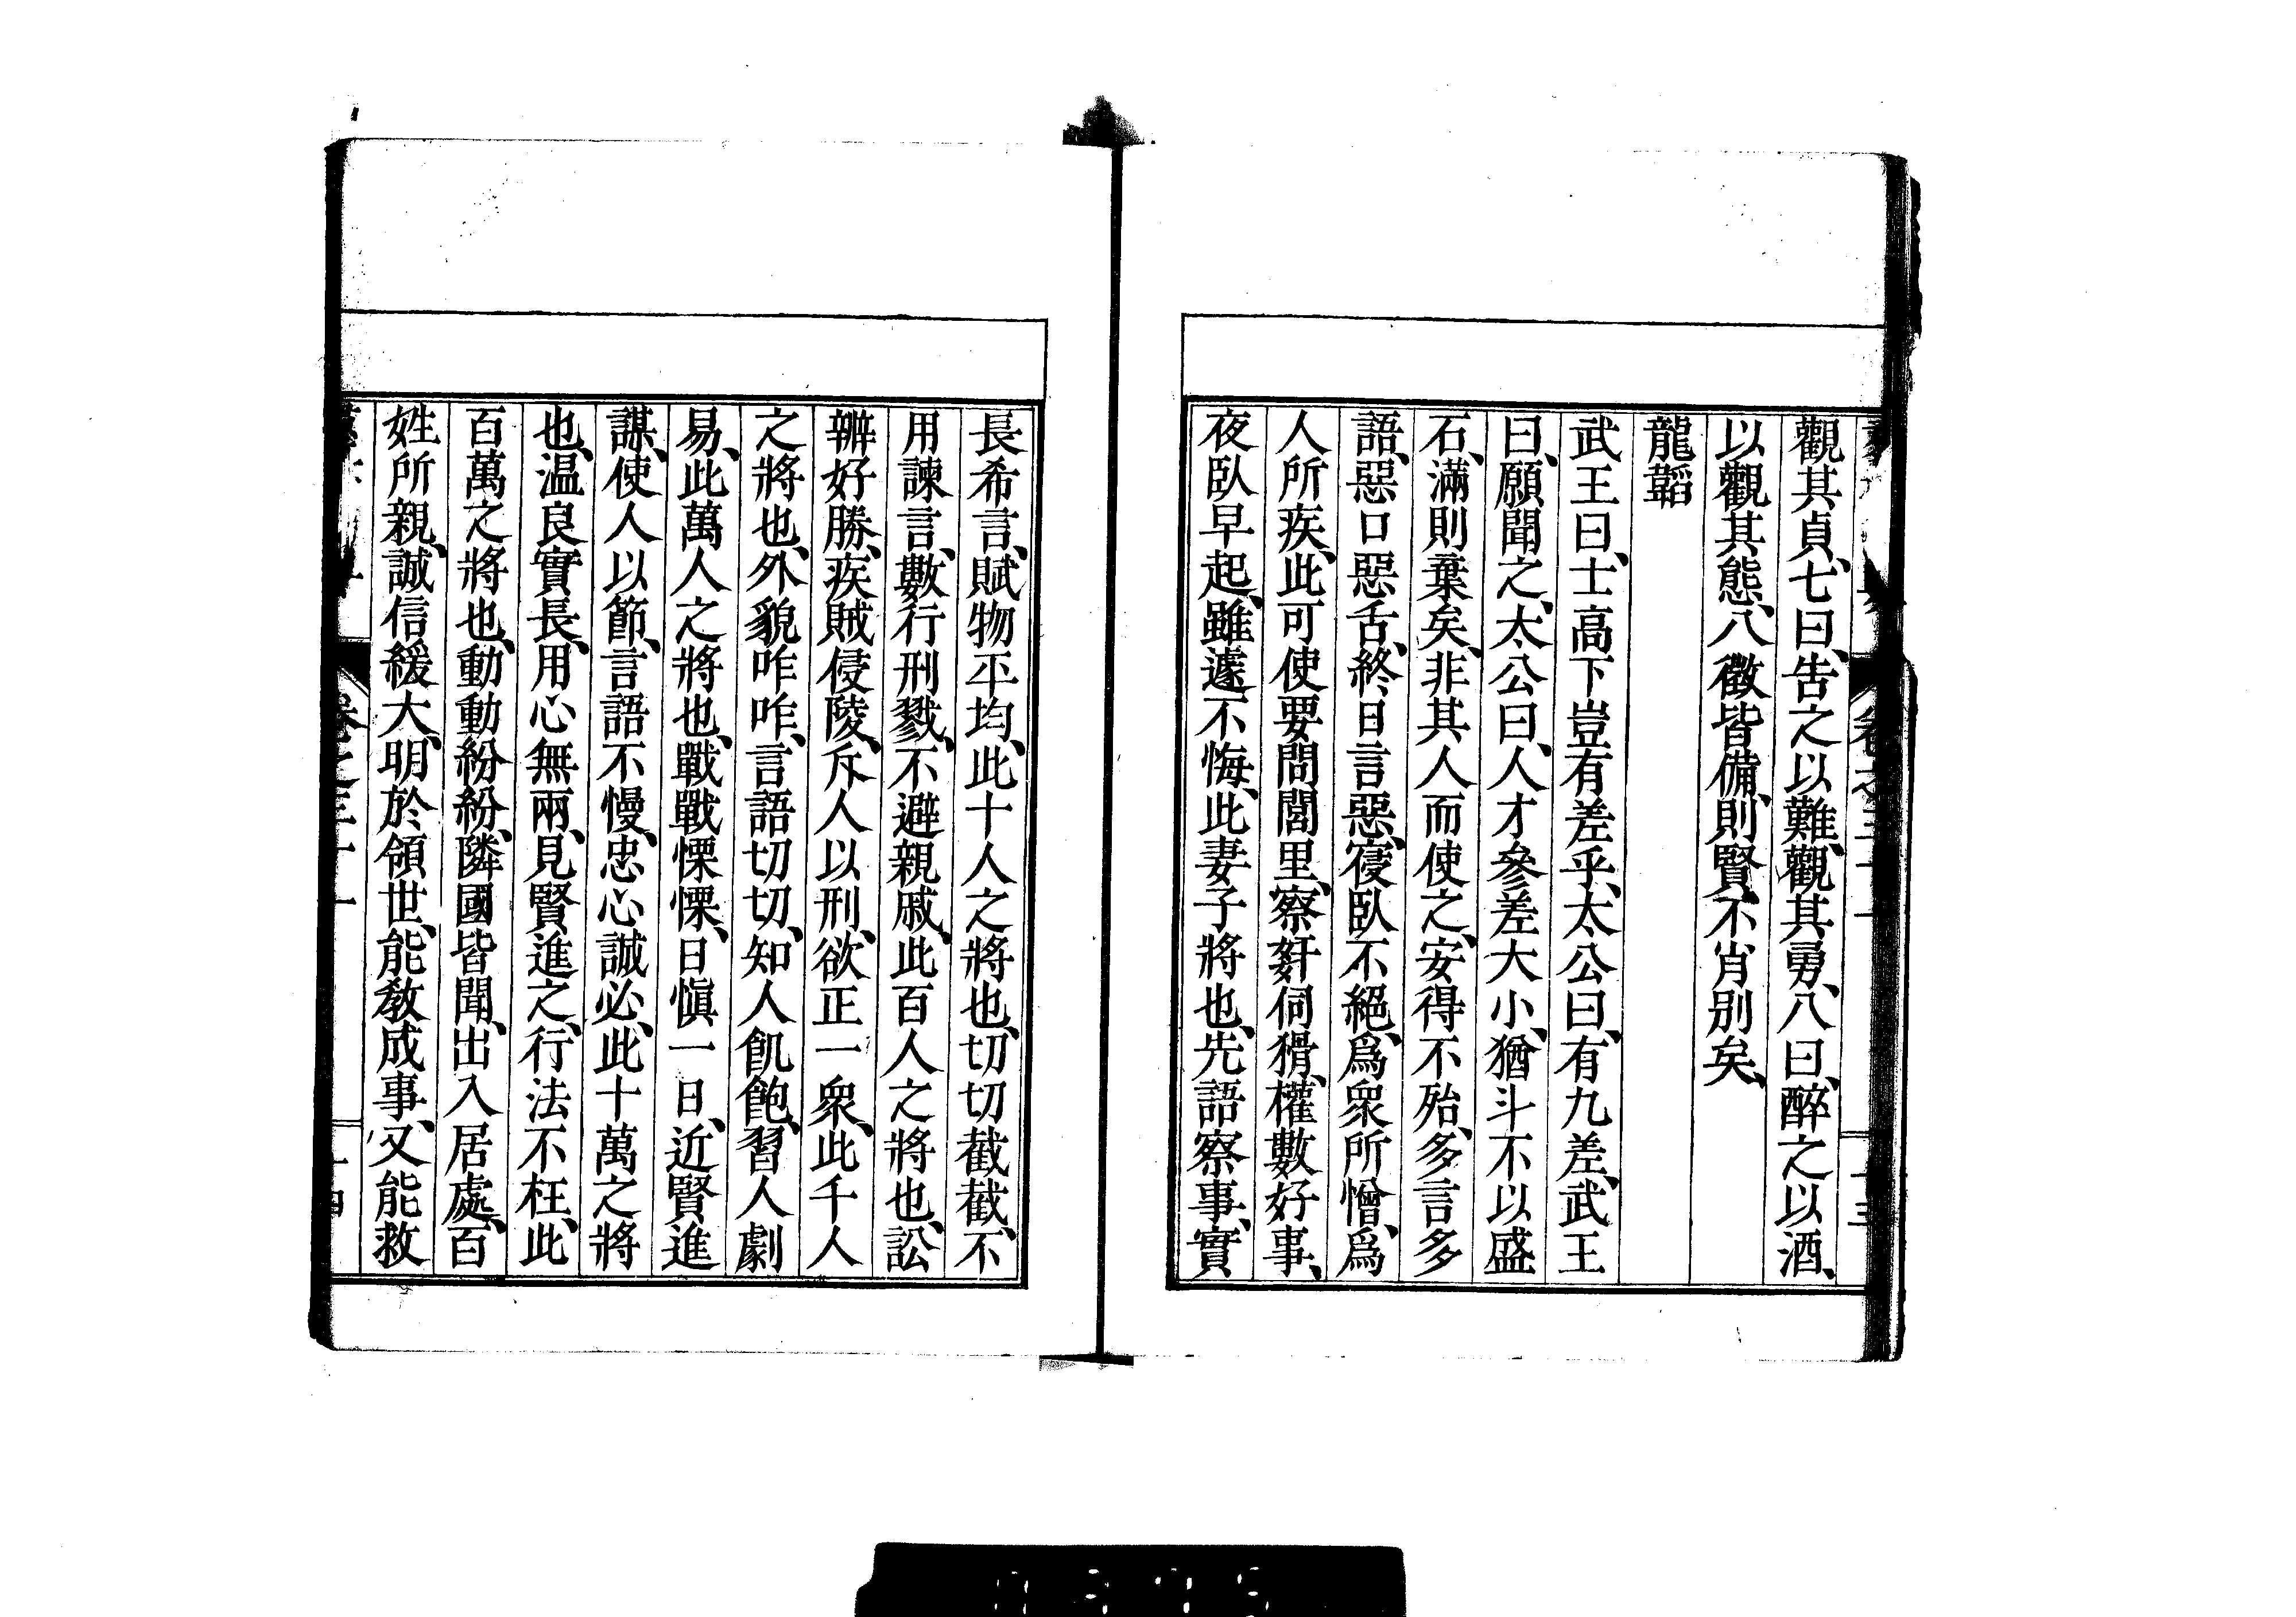 觀其貞、七曰、告之以難、觀其勇、八曰、醉之以酒、
以觀其態、八徵皆備、則賢不肖別矣、
龍韜
武王曰、士高下豈有差乎、太公曰、有九差、武王
曰、願聞之、太公曰、人才參差大小、猶斗不以盛
石、滿則棄矣、非其人而使之、安得不殆、多言多
語、惡口惡舌、終日言惡、寑臥不絕、爲衆所憎、爲
人所疾、此可使要問閭里、察姧伺猾、權數好事、
夜臥早起、雖遽不悔、此妻子將也、先語察事、實
長希言、賦物平均、此十人之將也、切切截截、不
用諫言、數行刑戮、不避親戚、此百人之將也、訟
辨好勝、疾賊侵陵、斥人以刑、欲正一衆、此千人
之將也、外貌咋咋、言語切切、知人飢飽、習人劇
易、此萬人之將也、戰戰慄慄、日愼一日、近賢進
謀、使人以節、言語不慢、忠心誠必、此十萬之將
也、温良實長、用心無兩、見賢進之、行法不枉、此
百萬之將也、動動紛紛、隣國皆聞、出入居處、百
姓所親、誠信緩大、明於領世、能敎成事、又能救
卷之三十一
十四